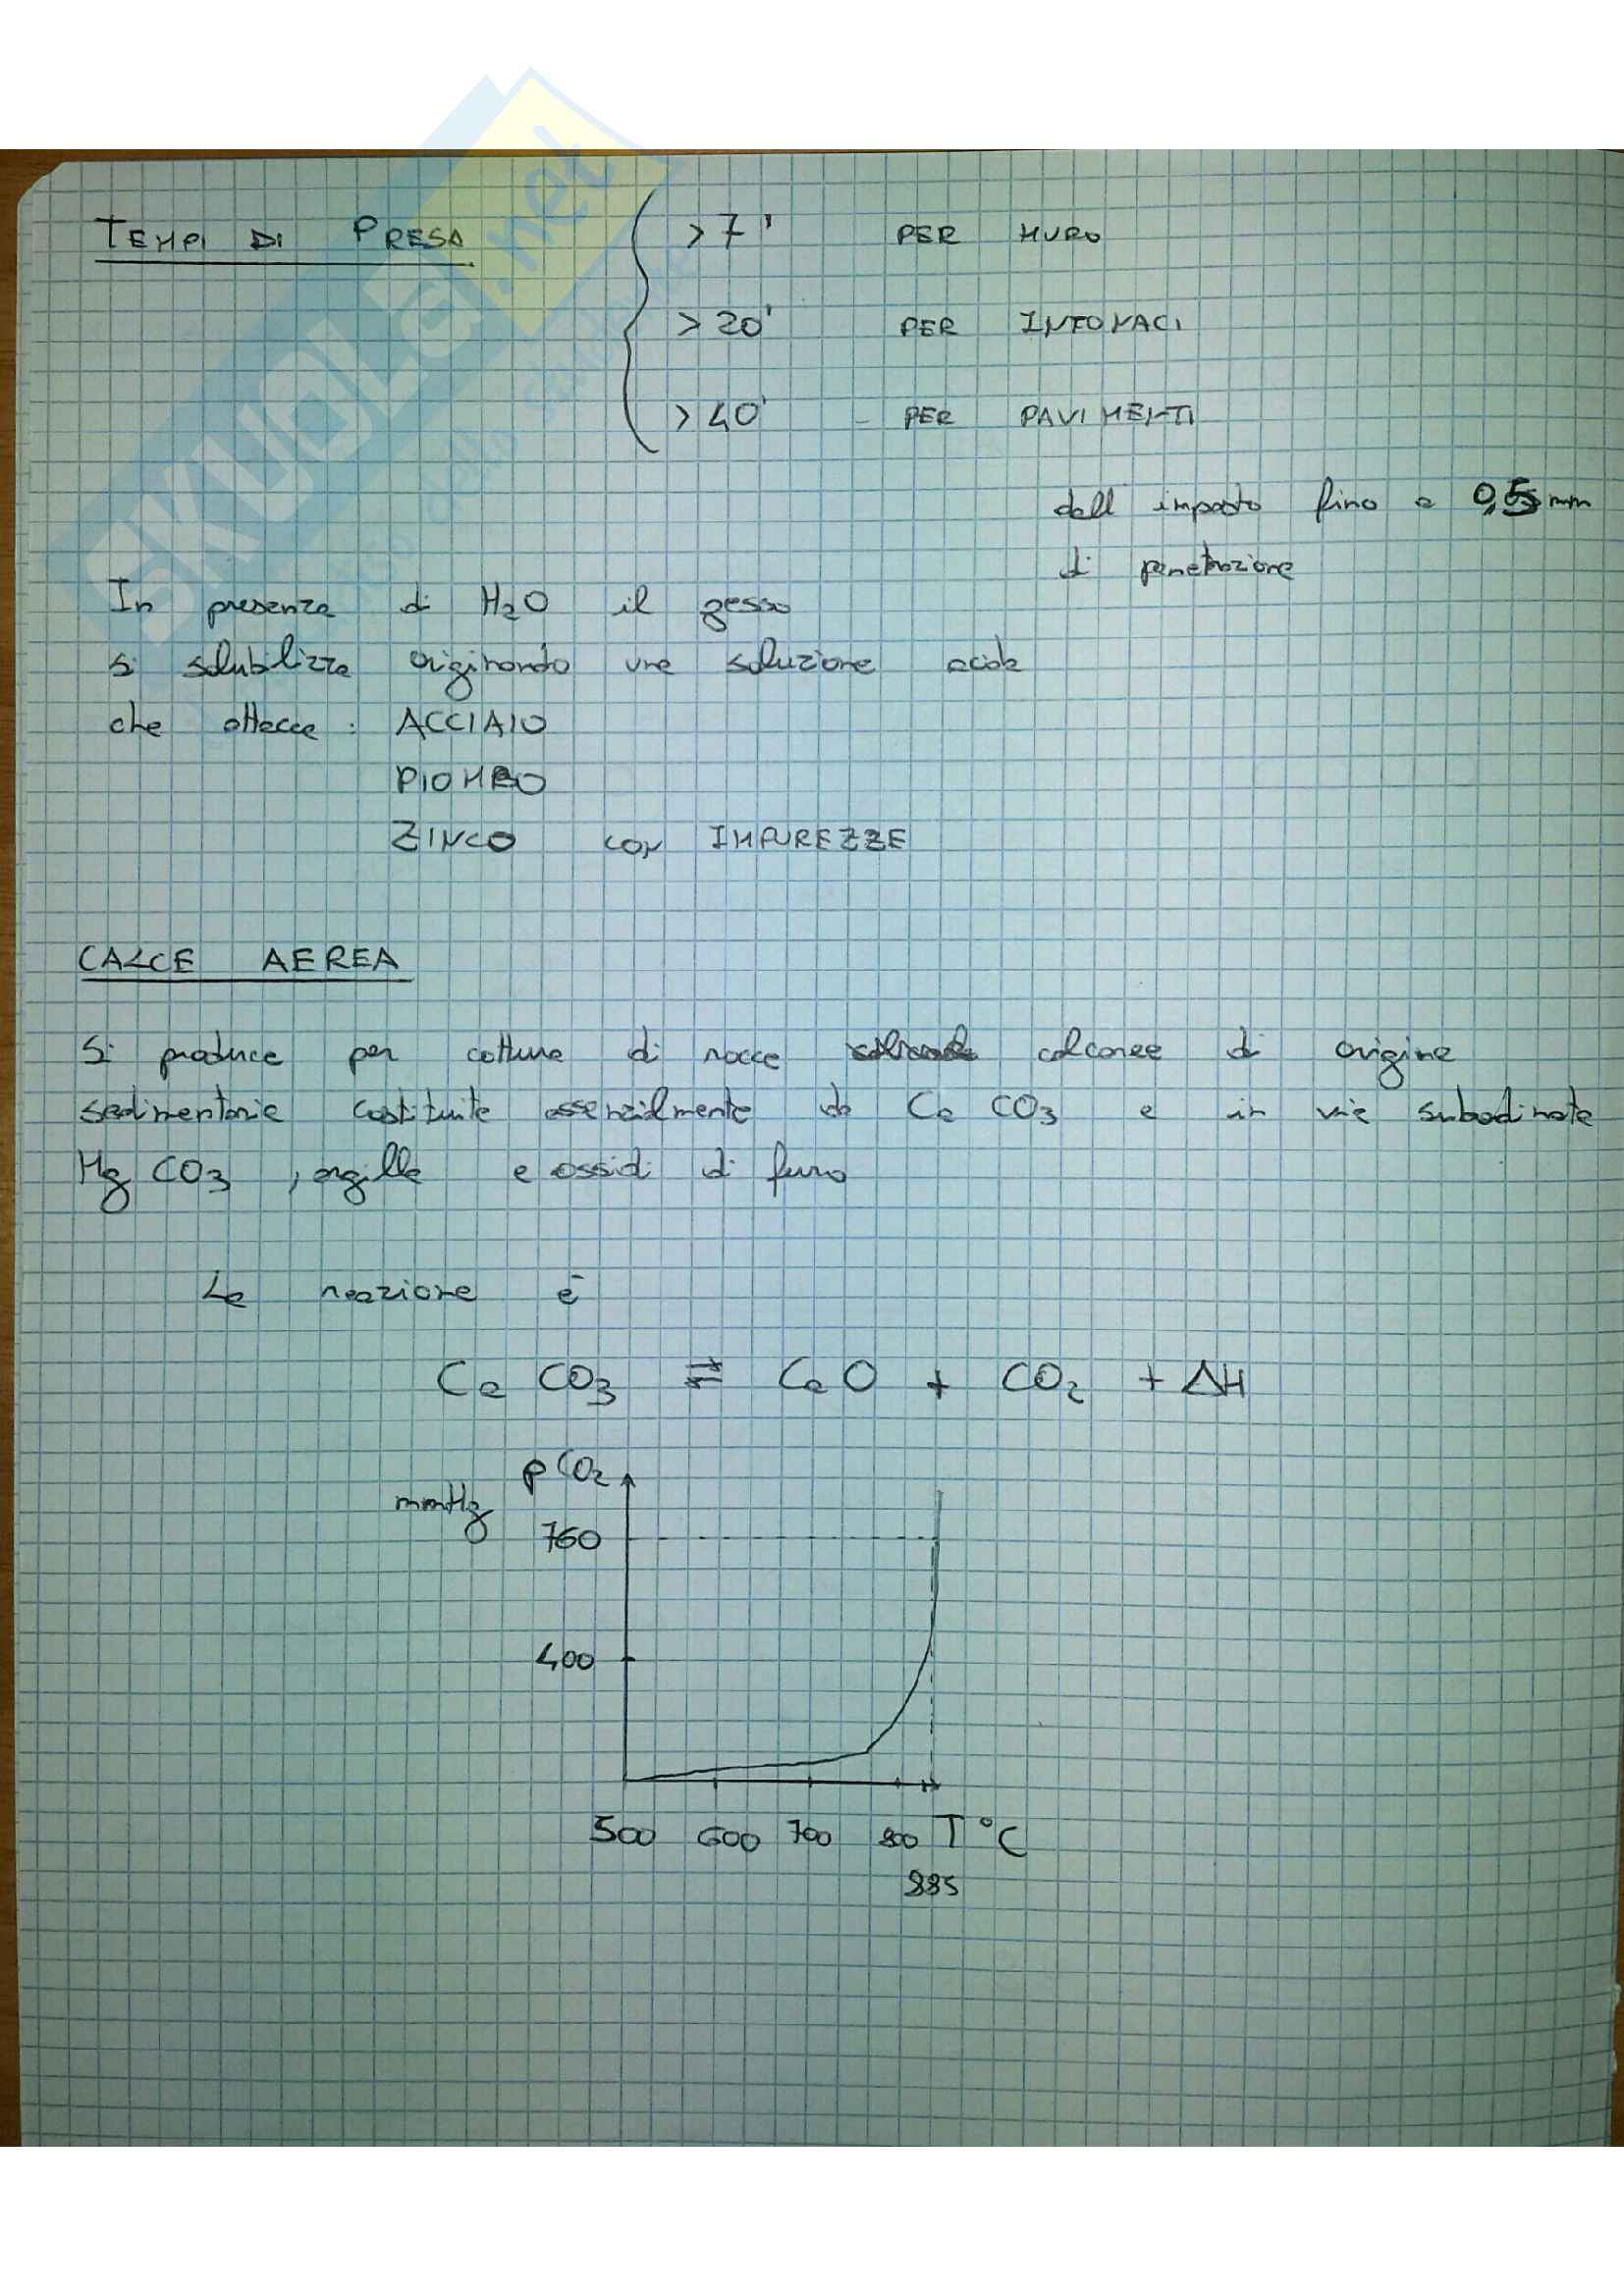 TEMPI DI PRESA
>7' PER MURO
>20' PER INTONACI
>40' PER PAVIMENTI
dall impasto fino a 0,5 mm
di penetrazione
In presenza di H2O il gesso
si solubilizza originando una soluzione acida
che attacca : ACCIAIO
PIOMBO
ZINCO CON IMPUREZZE
CALCE AEREA
Si produce per cottura di rocce calcaree di origine
sedimentaria costituite essenzialmente da Ca CO3 e in via subordinata
Mg CO3 , argilla e ossidi di ferro
La reazione è
Ca CO3 ⇄ CaO + CO2 + ΔH
pCO2
mmHg
760
400
500 600 700 800 T °C
885
SKUOLA.net